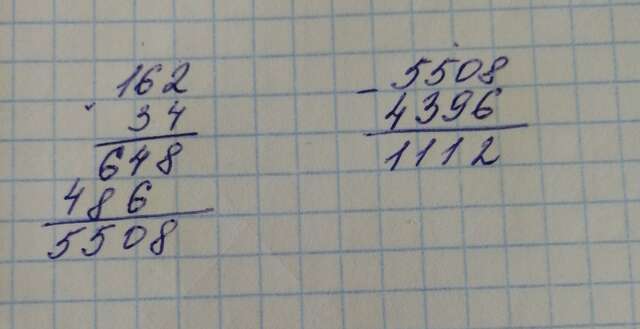 162
· 34
648
486
5508
- 5508
4396
1112